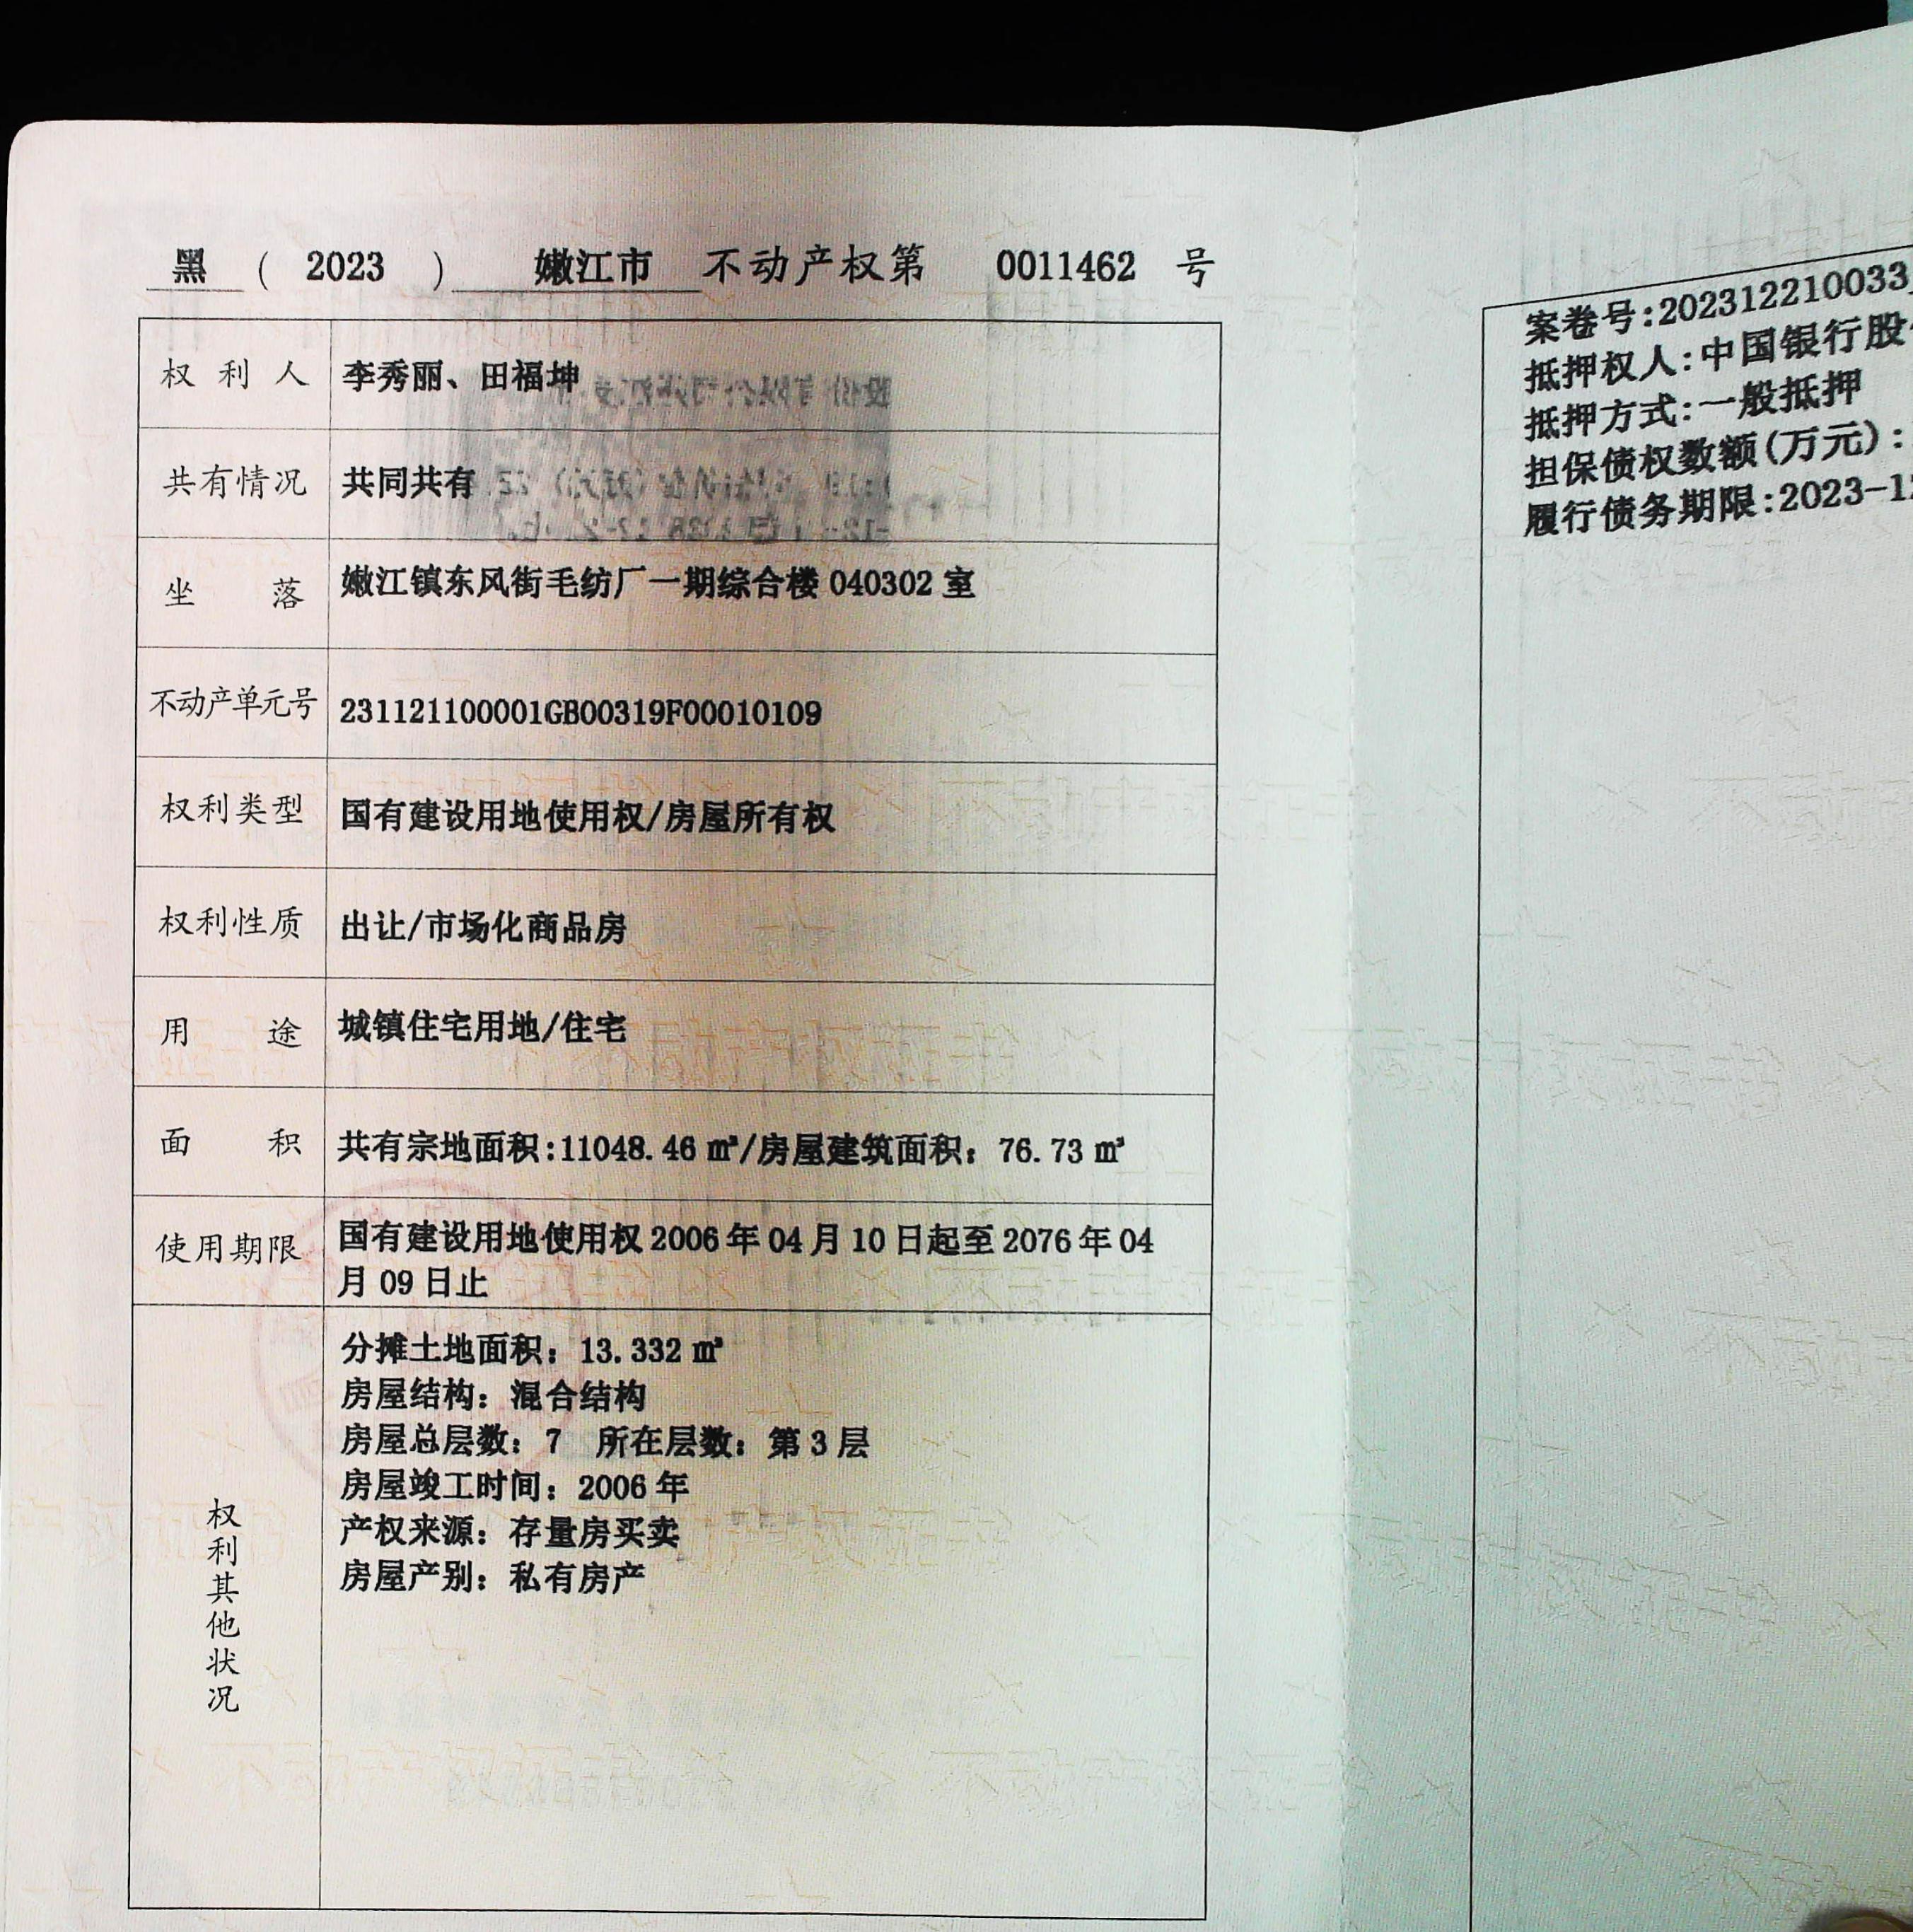 黑 ( 2023 ) 嫩江市 不动产权第 0011462 号
权利人 李秀丽、田福坤
共有情况 共同共有
坐落 嫩江镇东风街毛纺厂一期综合楼 040302 室
不动产单元号 231121100001GB00319F00010109
权利类型 国有建设用地使用权/房屋所有权
权利性质 出让/市场化商品房
用途 城镇住宅用地/住宅
面积 共有宗地面积:11048.46 ㎡/房屋建筑面积: 76.73 ㎡
使用期限 国有建设用地使用权 2006 年 04 月 10 日起至 2076 年 04
月 09 日止
权利其他状况
分摊土地面积: 13.332 ㎡
房屋结构: 混合结构
房屋总层数: 7 所在层数: 第 3 层
房屋竣工时间: 2006 年
产权来源: 存量房买卖
房屋产别: 私有房产
案卷号:202312210033
抵押权人:中国银行股
抵押方式:一般抵押
担保债权数额(万元):
履行债务期限:2023-1